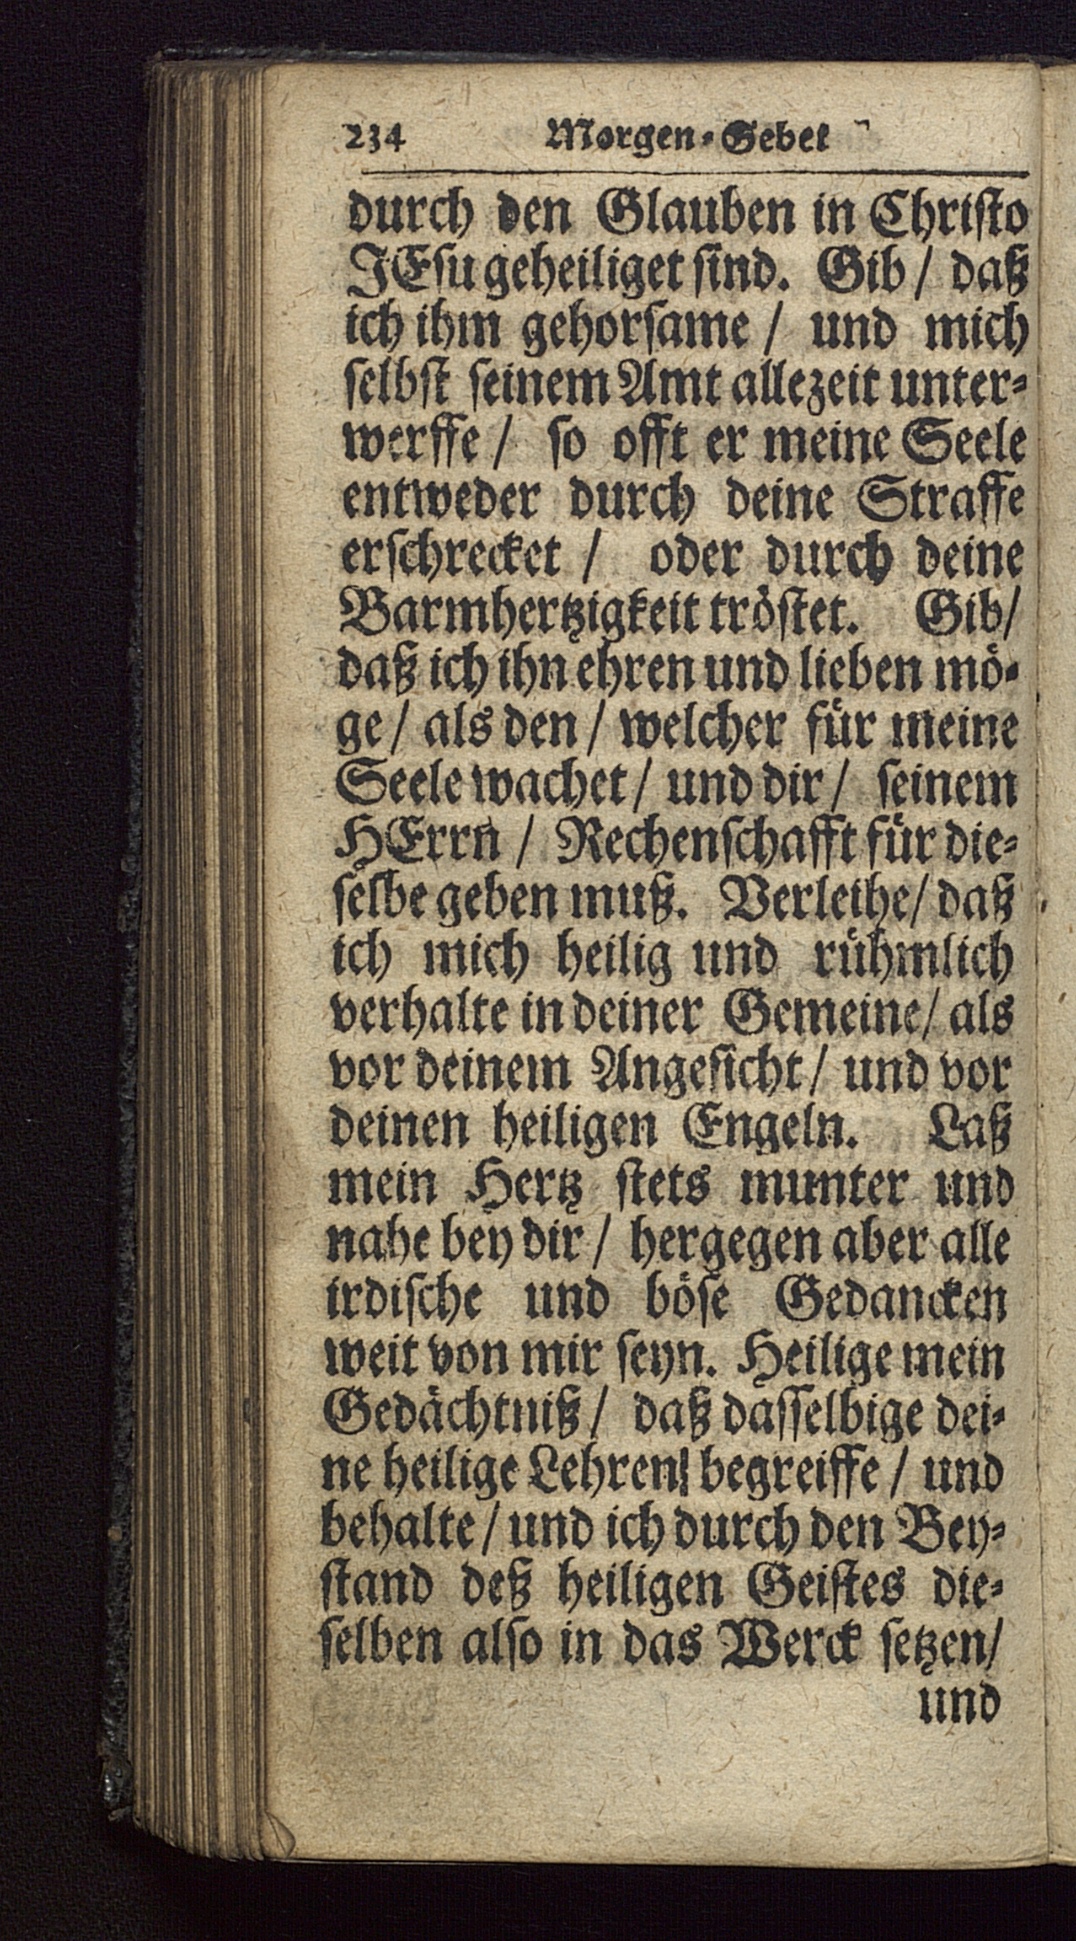 234 Morgen-Gebet
durch den Glauben in Christo
JEsu geheiliget sind. Gib / daß
ich ihm gehorsame / und mich
selbst seinem Amt allezeit unter-
werffe / so offt er meine Seele
entweder durch deine Straffe
erschrecket / oder durch deine
Barmhertzigkeit tröstet. Gib/
daß ich ihn ehren und lieben mö-
ge / als den / welcher für meine
Seele wachet / und dir / seinem
HErrn / Rechenschafft für die-
selbe geben muß. Verleihe / daß
ich mich heilig und rühmlich
verhalte in deiner Gemeine / als
vor deinem Angesicht / und vor
deinen heiligen Engeln. Laß
mein Hertz stets munter und
nahe bey dir / hergegen aber alle
irdische und böse Gedancken
weit von mir seyn. Heilige mein
Gedächtniß / daß dasselbige dei-
ne heilige Lehren begreiffe / und
behalte / und ich durch den Bey-
stand deß heiligen Geistes die-
selben also in das Werck setzen/
und